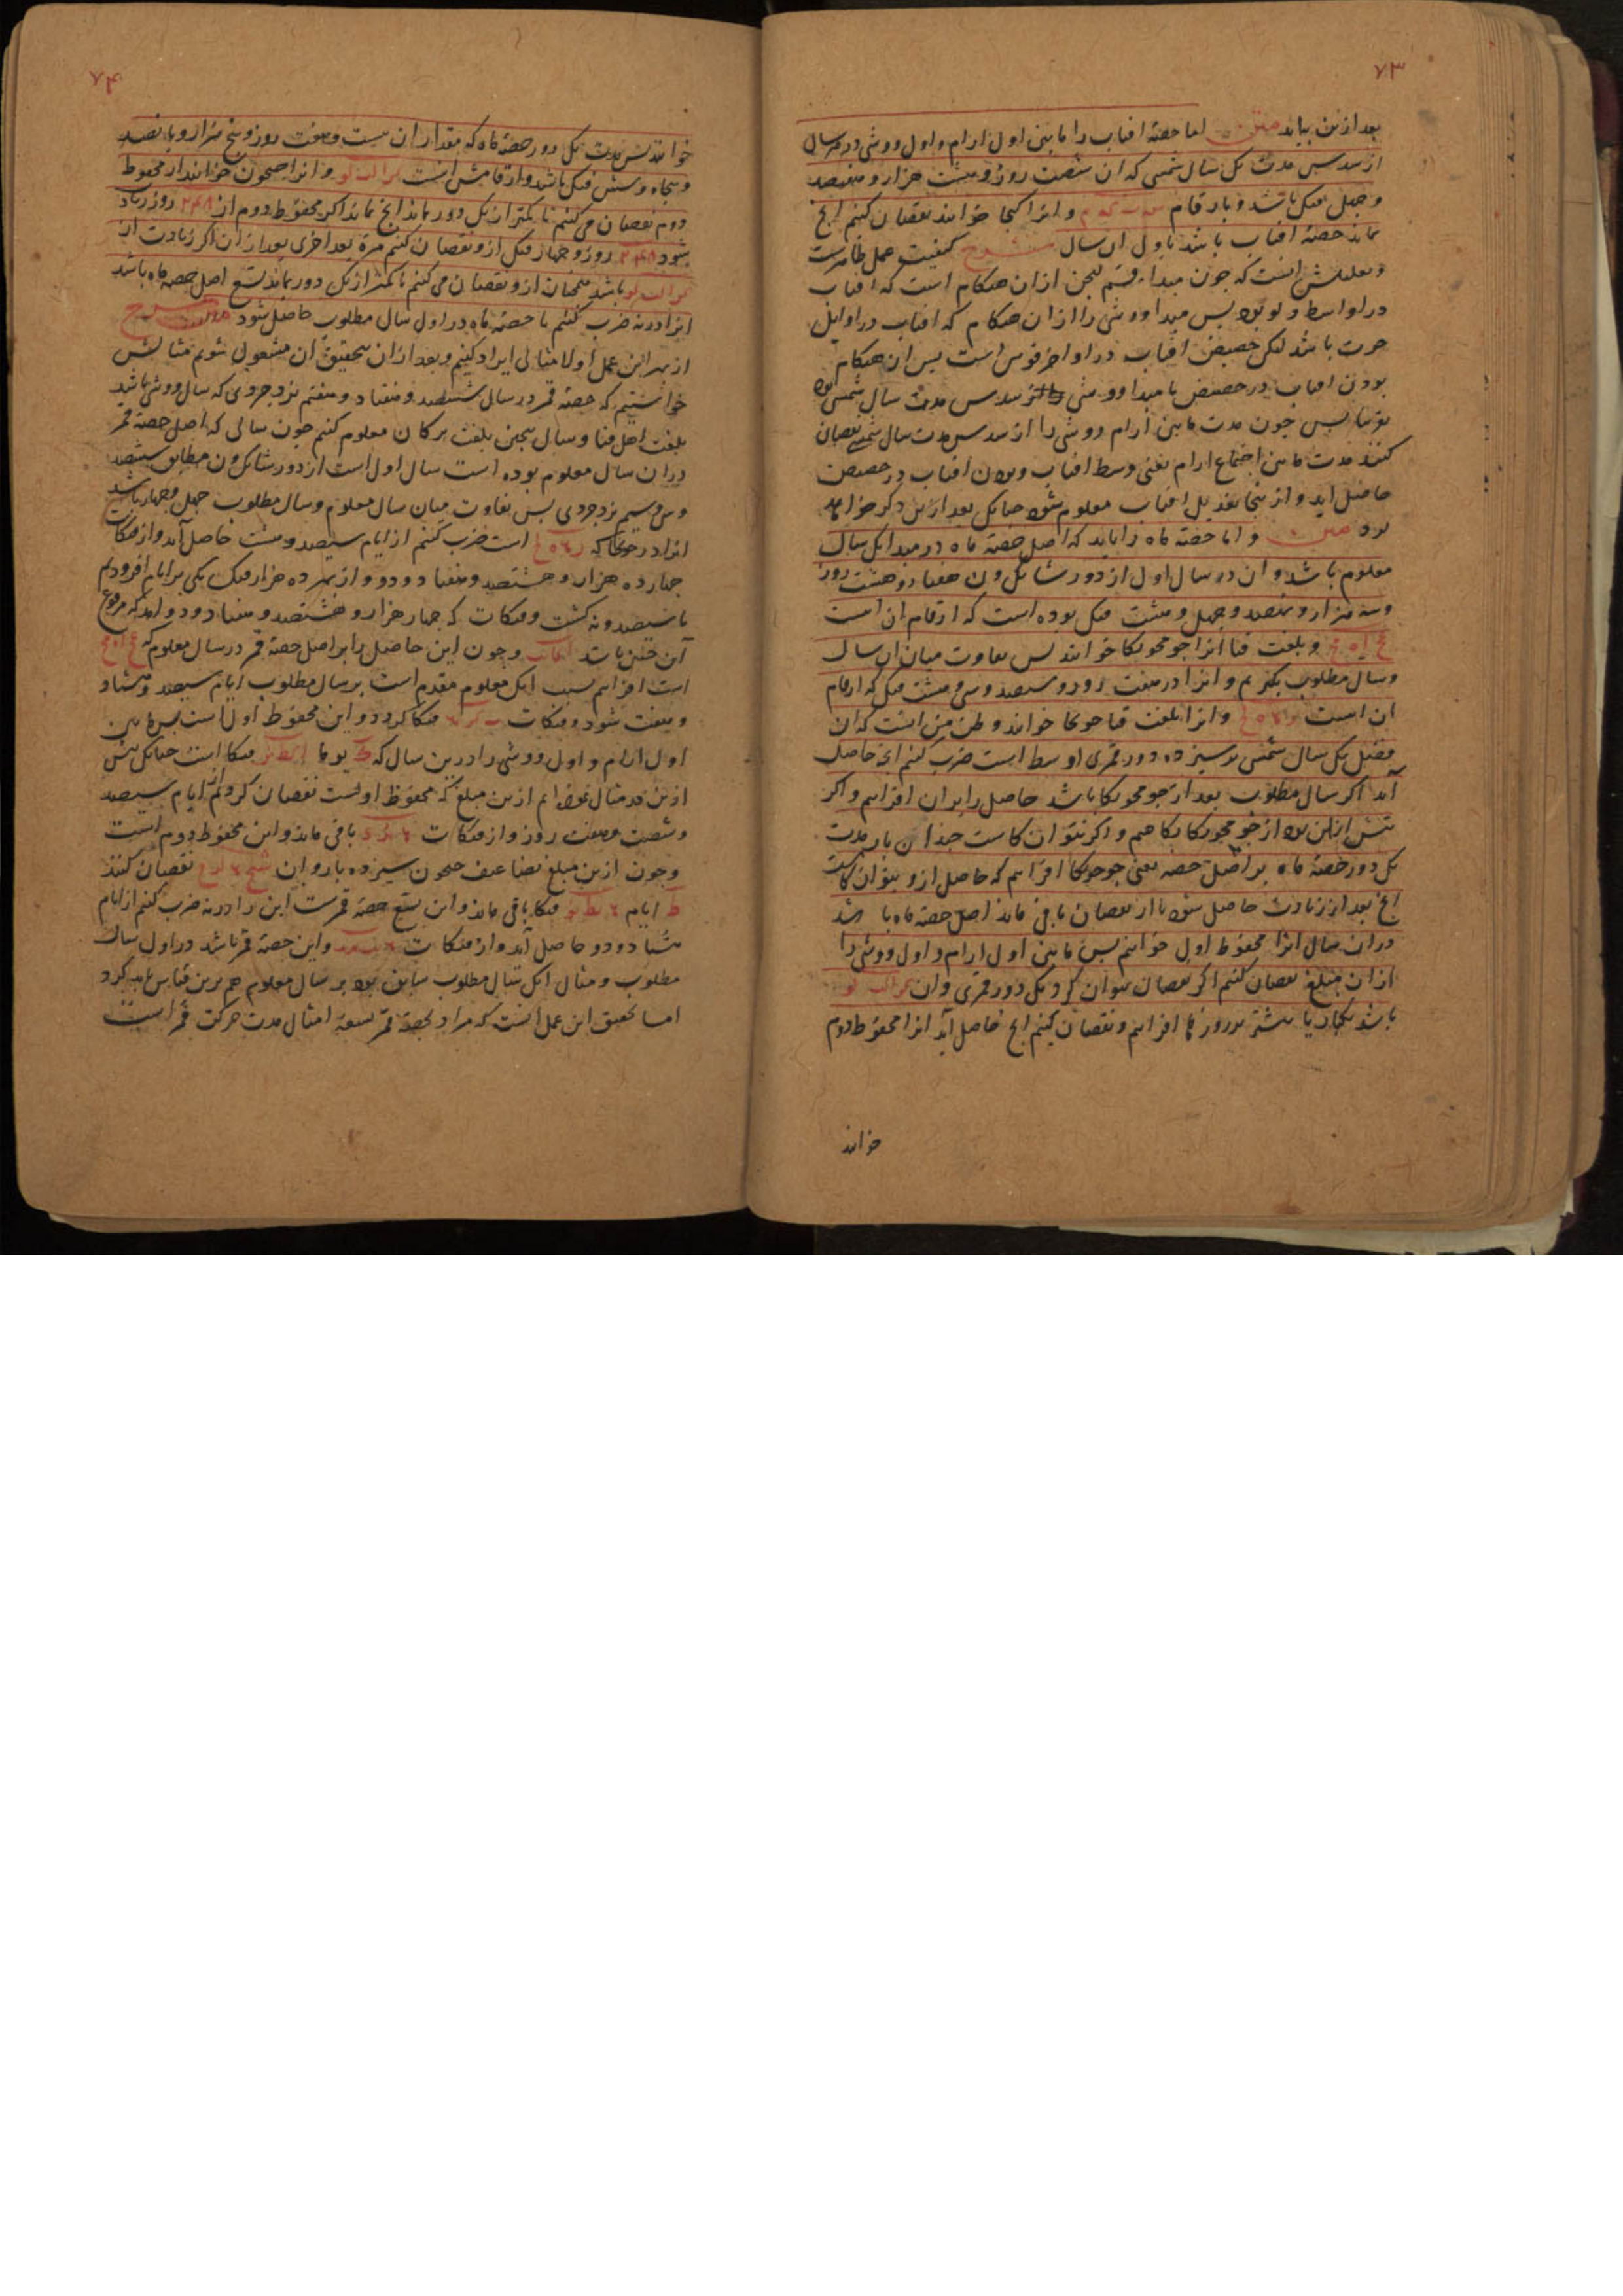 ۷۳
بعد ازین بیاید متن اما حصهٔ افتاب را ما بین اول ارام و اول ووشی در هر سال
از سدس مدت یک سال شمسی که ان شصت روز و هشت هزار و هفصد
و چهل فنک باشد و بارقام و انرا کیجا خوانند نقصان کنیم انچ
بماند حصهٔ افتاب باشد باول ان سال شرح کیفیت عمل ظاهرست
و تعلیلش انست که چون مبدا قسم لیجن ازان هنکام است که افتاب
در اواسط دلو بود پس مبدا ووشی را ازان هنکام که افتاب در اوایل
حوت باشد لیکن حضیض افتاب در اواخر قوس است پس ان هنکام
بودن افتاب در حضیض تا مبدا ووشی سدس مدت سال شمسی بود
تقریبا پس چون مدت ما بین ارام ووشی را از سدس مدت سال شمسی نقصان
کنند مدت ما بین اجتماع ارام یعنی وسط افتاب و بودن افتاب در حضیض
حاصل اید و از ینجا تعدیل افتاب معلوم شود چنانک بعد ازین ذکر خواهد
بود متن و اما حصهٔ ماه را باید که اصل حصهٔ ماه در مبدا یک سال
معلوم باشد و ان در سال اول از دور شانک ون هفتاد و هشت روز
وسه هزار و نهصد و چهل و هشت فنک بوده است که ارقام ان است
و بلغت قتا انرا جو محوکا خوانند پس تفاوت میان ان سال
وسال مطلوب بکیریم و انرا در هفت روز و سیصد و سی و هشت فنک که ارقام
ان است و انرا بلغت قتا جوخا خوانند وظن من انست که ان
فضل یک سال شمسی بر سیزده دور قمری اوسط است ضرب کنیم انچه حاصل
آید اکر سال مطلوب بعد از جو محوکا باشد حاصل را بران افزاییم و اکر
پیش ازان بود از جو محوکا بکاهیم و اکر نتوان کاست چندان بار مدت
یک دور حصهٔ ماه بر اصل حصه یعنی جوحوکا افزاییم که حاصل ازو بتوان کاست
انچ بعد از زیادت حاصل شود یا از نقصان باقی ماند اصل حصهٔ ماه باشد
دران سال انرا محفوظ اول خوانیم پس ما بین اول ارام و اول ووشی را
ازان مبلغ نقصان کنیم اکر نقصان نتوان کرد یک دور قمری وان
باشد یکبار یا بیشتر بر روزها افزاییم و نقصان کنیم انچ حاصل آید انرا محفوظ دوم
خوانند
۷۴
خوانند پس مدت یک دور حصهٔ ماه که مقدار ان بیست و هفت روز و پنج هزار و پانصد
و پنجاه و شش فنک باشد و ارقامش انست و انرا صحون خوانند از محفوظ
دوم نقصان می کنیم تا کمتر از یک دور بماند انچ بماند اکر محفوظ دوم از ۲۴۸ روز زیاد
شود ۲۴۸ روز و چهار فنک ازو نقصان کنیم مرة بعد اخری بعد ازان اکر زیادت از
باشد همچنان ازو نقصان می کنیم تا کمتر از یک دور بماند تسع اصل حصهٔ ماه باشد
انرا در نه ضرب کنیم تا حصهٔ ماه در اول سال مطلوب حاصل شود شرح
از بهر این عمل اولا مثالی ایراد کنیم و بعد ازان بتحقیق ان مشغول شویم مثالش
خواستیم که حصهٔ قمر در سال ششصد و هفتاد و هفتم یزدجردی که سال ووشی باشد
بلغت اهل قتا و سال بیجین بلغت ترکان معلوم کنیم چون سالی که اصل حصهٔ قمر
دران سال معلوم بوده است سال اول است از دور شانک ون مطابق ششصد
وسی وسیم یزدجردی پس تفاوت میان سال معلوم و سال مطلوب چهل و چهار باشد
انرا در جوخا که است ضرب کنیم از ایام سیصد و هشت حاصل آید و از فنکات
چهارده هزار و هشتصد و هفتاد و دو و از بهر ده هزار فنک یکی بر ایام افزودیم
تا سیصد و نه کشت و فنکات که چهار هزار و هشتصد و هفتاد و دو ماند که مرفوع
آن چنین باشد و چون این حاصل را بر اصل حصهٔ قمر در سال معلوم که
است افزاییم بسبب انک معلوم مقدم است بر سال مطلوب ایام سیصد و هشتاد
و هفت شود و فنکات فنکا کردد و این محفوظ اول است پس ما بین
اول ارام و اول ووشی را درین سال که یوما فنکا است چنانک پیش
ازین در مثال نموده ایم ازین مبلغ که محفوظ اولست نقصان کردیم ایام سیصد
و شصت و هفت روز و از فنکات باقی ماند و این محفوظ دوم است
و چون ازین مبلغ تضاعیف صحون سیزده بار و ان نقصان کنند
ایام فنکا باقی ماند و این تسع حصهٔ قمرست این را در نه ضرب کنیم از ایام
هشتاد و دو حاصل آید و از فنکات و این حصهٔ قمر باشد در اول سال
مطلوب و مثال انک سال مطلوب سابق بود بر سال معلوم هم برین قیاس باید کرد
اما تحقیق این عمل انست که مراد بحصهٔ قمر تسعهٔ امثال مدت حرکت قمر است